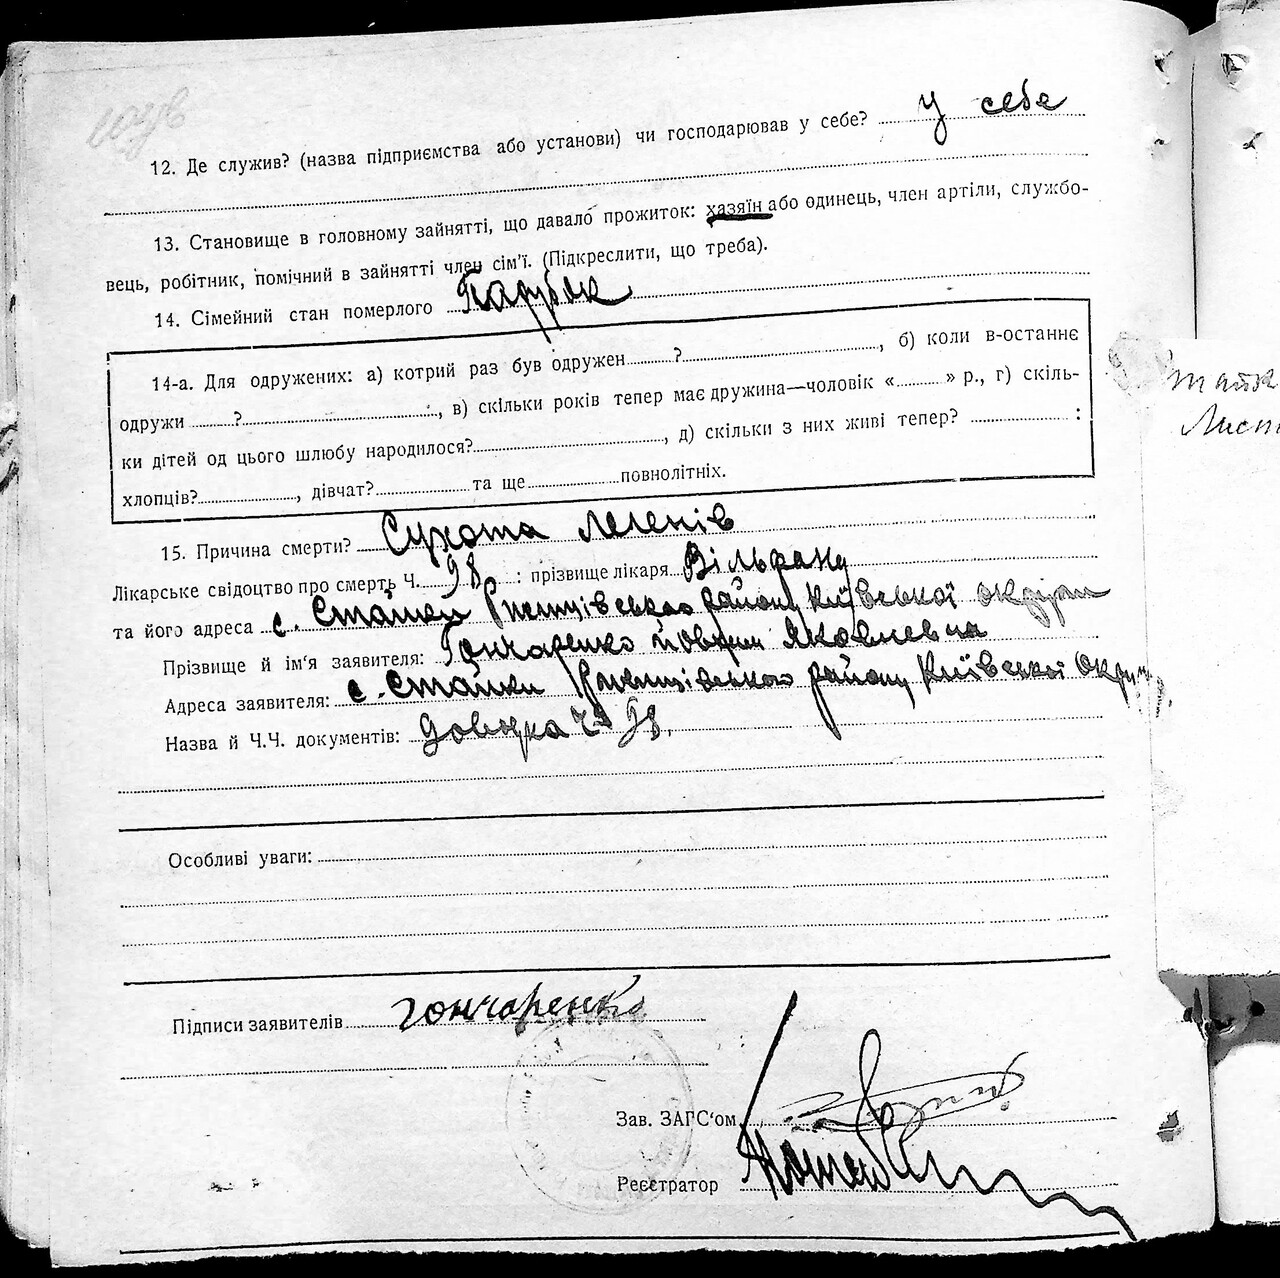 12. Де служив? (назва підприємства або установи) чи господарював у себе? у себе
13. Становище в головному зайнятті, що давало прожиток: хазяїн або одинець, член артіли, службо-
вець, робітник, помічний в зайнятті член сім'ї. (Підкреслити, що треба).
14. Сімейний стан померлого Парубок
14-а. Для одружених: а) котрий раз був одружен ? , б) коли в-останнє
одружи ? , в) скільки років тепер має дружина—чоловік « » р., г) скіль-
ки дітей од цього шлюбу народилося? , д) скільки з них живі тепер? :
хлопців? , дівчат? та ще повнолітніх.
15. Причина смерти? Сухота легенів
Лікарське свідоцтво про смерть Ч. 98 : прізвище лікаря Вільфанд
та його адреса с. Стайки Ржищівського району Київської округи
Прізвище й ім'я заявителя: Гончаренко Яковлевна
Адреса заявителя: с. Стайки Ржищівського району Київської Округи
Назва й Ч.Ч. документів: Довідка Ч 98.
Особливі уваги:
Підписи заявителів гончаренко
Зав. ЗАГС'ом
Реєстратор